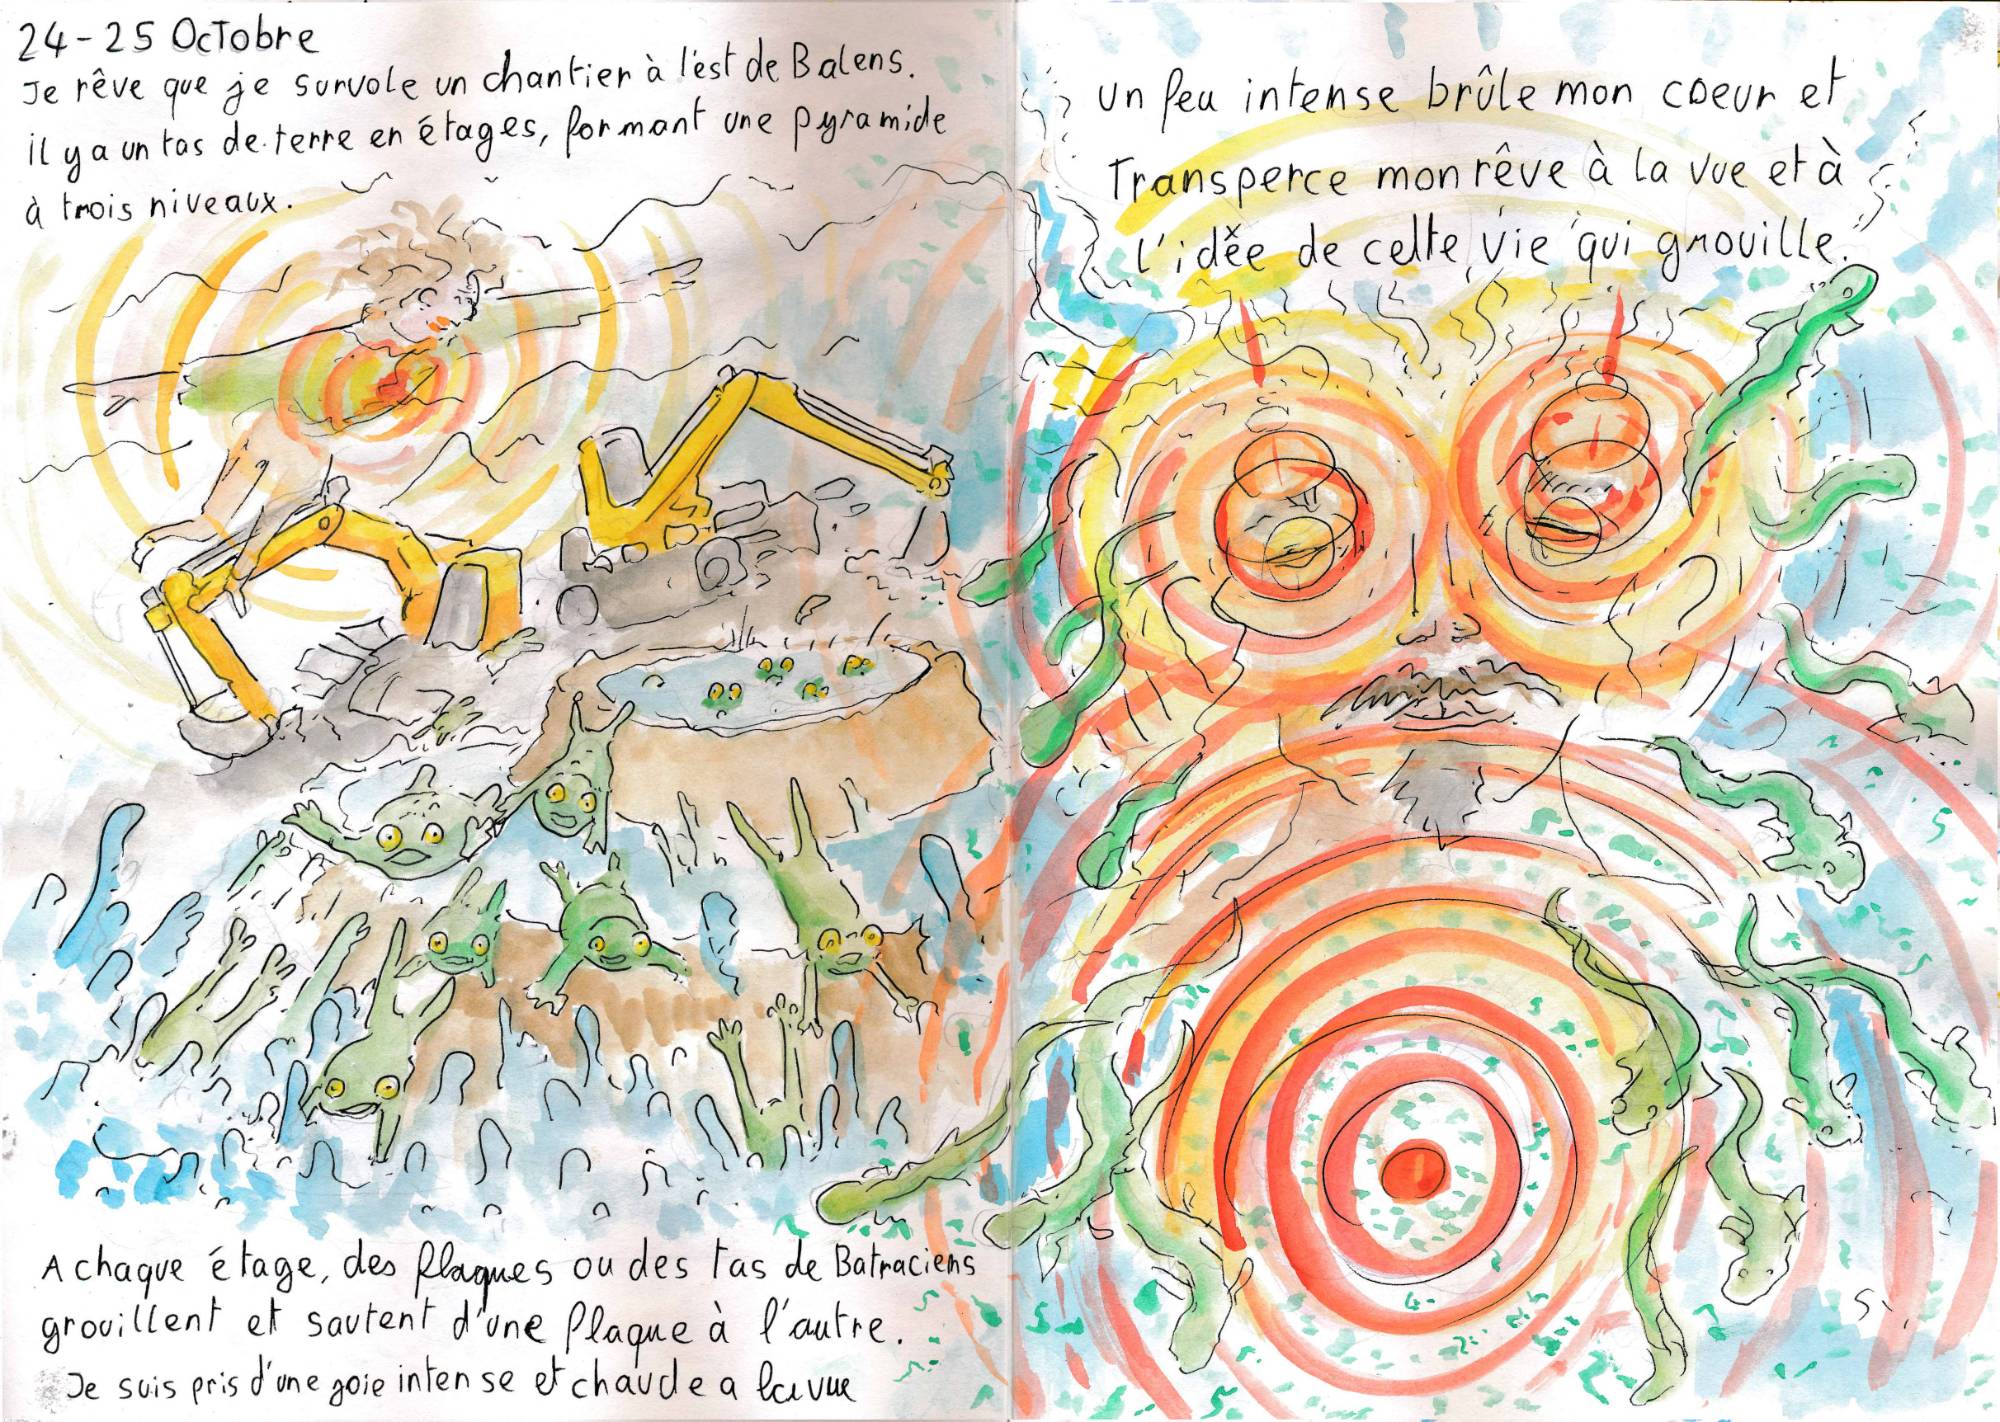 24-25 Octobre
Je rêve que je survole un chantier à l'est de Balens.
il y a un tas de terre en étages, formant une pyramide
à trois niveaux.
A chaque étage, des plaques ou des tas de Batraciens
grouillent et sautent d'une plaque à l'autre.
Je suis pris d'une joie intense et chaude a la vue
un feu intense brûle mon coeur et
Transperce mon rêve à la vue et à
l'idée de cette vie qui grouille.